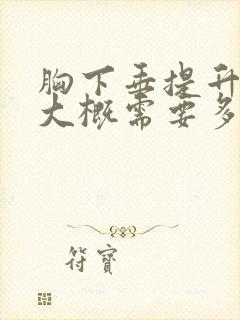 胸下垂提升
大概需要多
符寶